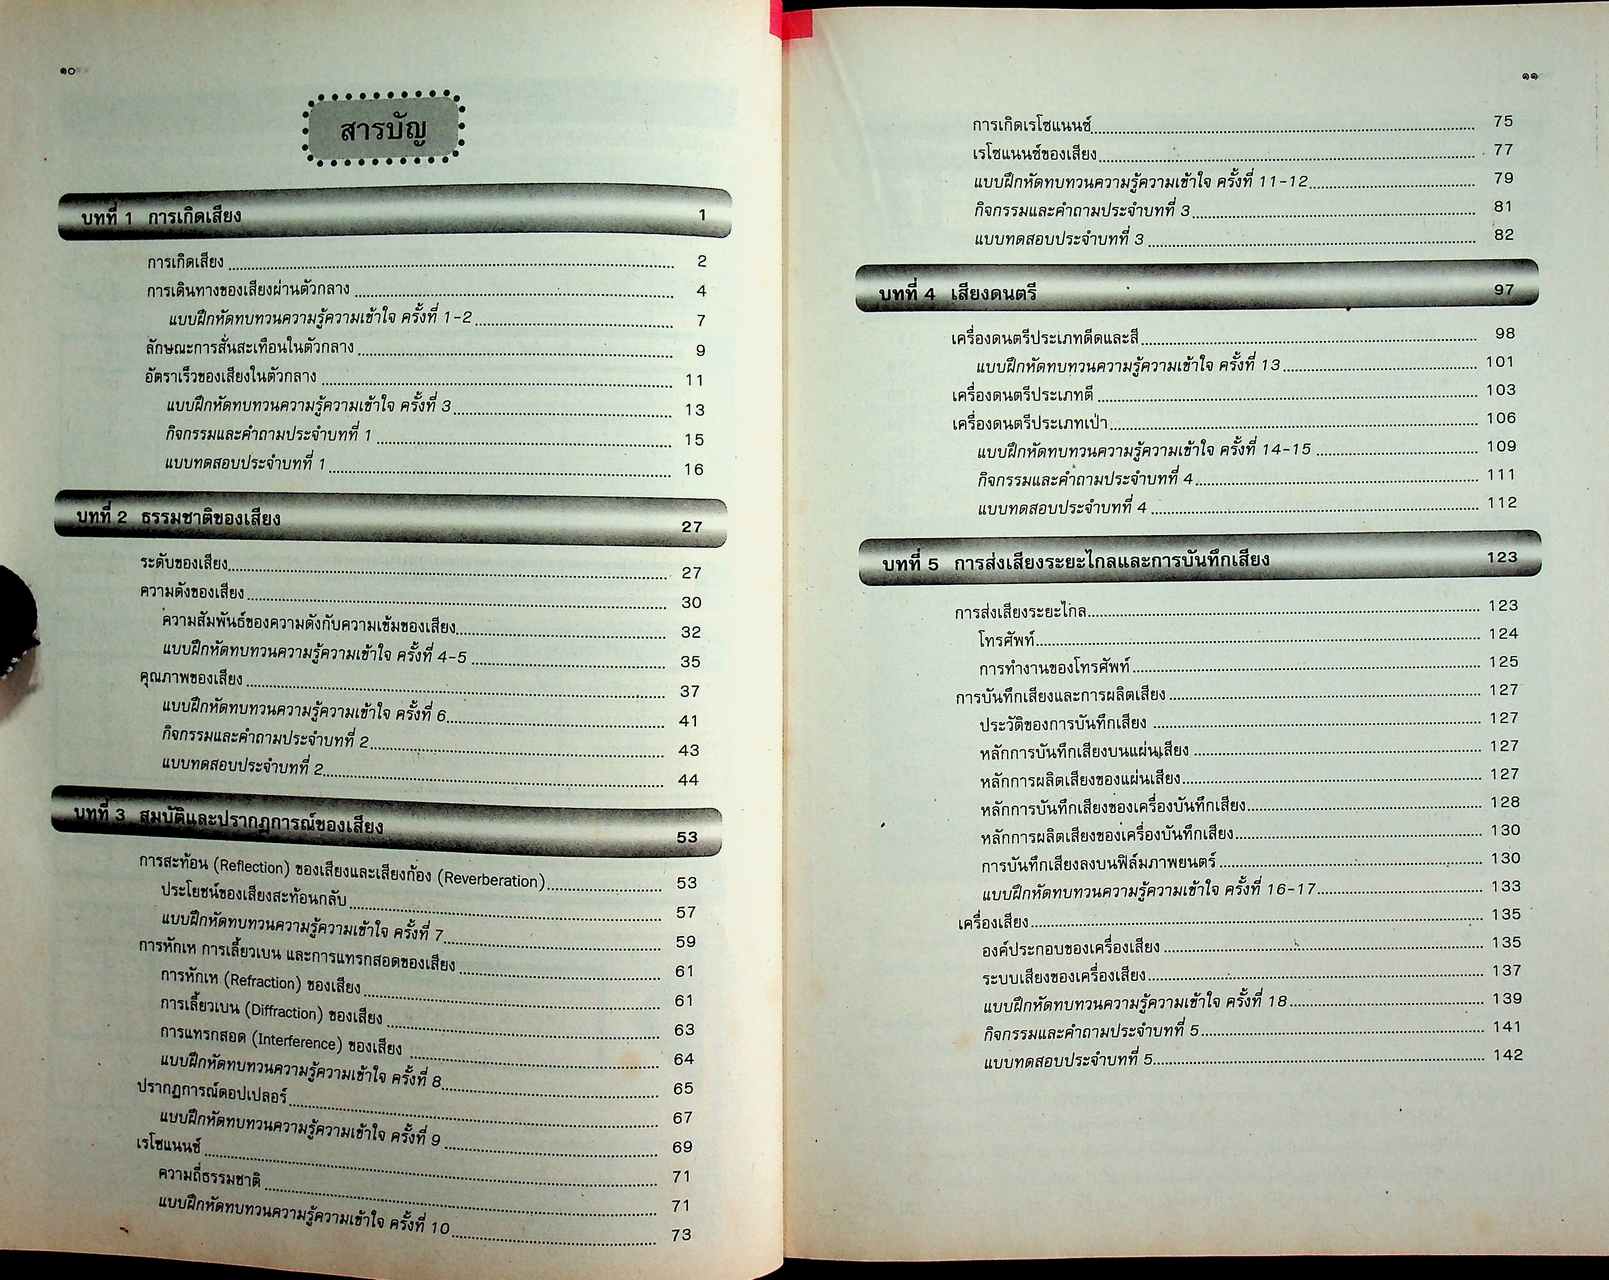 ๑๐
สารบัญ
บทที่ 1 การเกิดเสียง 1
การเกิดเสียง 2
การเดินทางของเสียงผ่านตัวกลาง 4
แบบฝึกหัดทบทวนความรู้ความเข้าใจ ครั้งที่ 1-2 7
ลักษณะการสั่นสะเทือนในตัวกลาง 9
อัตราเร็วของเสียงในตัวกลาง 11
แบบฝึกหัดทบทวนความรู้ความเข้าใจ ครั้งที่ 3 13
กิจกรรมและคำถามประจำบทที่ 1 15
แบบทดสอบประจำบทที่ 1 16
บทที่ 2 ธรรมชาติของเสียง 27
ระดับของเสียง 27
ความดังของเสียง 30
ความสัมพันธ์ของความดังกับความเข้มของเสียง 32
แบบฝึกหัดทบทวนความรู้ความเข้าใจ ครั้งที่ 4-5 35
คุณภาพของเสียง 37
แบบฝึกหัดทบทวนความรู้ความเข้าใจ ครั้งที่ 6 41
กิจกรรมและคำถามประจำบทที่ 2 43
แบบทดสอบประจำบทที่ 2 44
บทที่ 3 สมบัติและปรากฏการณ์ของเสียง 53
การสะท้อน (Reflection) ของเสียงและเสียงก้อง (Reverberation) 53
ประโยชน์ของเสียงสะท้อนกลับ 57
แบบฝึกหัดทบทวนความรู้ความเข้าใจ ครั้งที่ 7 59
การหักเห การเลี้ยวเบน และการแทรกสอดของเสียง 61
การหักเห (Refraction) ของเสียง 61
การเลี้ยวเบน (Diffraction) ของเสียง 63
การแทรกสอด (Interference) ของเสียง 64
แบบฝึกหัดทบทวนความรู้ความเข้าใจ ครั้งที่ 8 65
ปรากฏการณ์ดอปเปลอร์ 67
แบบฝึกหัดทบทวนความรู้ความเข้าใจ ครั้งที่ 9 69
เรโซแนนซ์ 71
ความถี่ธรรมชาติ 71
แบบฝึกหัดทบทวนความรู้ความเข้าใจ ครั้งที่ 10 73
๑๑
การเกิดเรโซแนนซ์ 75
เรโซแนนซ์ของเสียง 77
แบบฝึกหัดทบทวนความรู้ความเข้าใจ ครั้งที่ 11-12 79
กิจกรรมและคำถามประจำบทที่ 3 81
แบบทดสอบประจำบทที่ 3 82
บทที่ 4 เสียงดนตรี 97
เครื่องดนตรีประเภทดีดและสี 98
แบบฝึกหัดทบทวนความรู้ความเข้าใจ ครั้งที่ 13 101
เครื่องดนตรีประเภทตี 103
เครื่องดนตรีประเภทเป่า 106
แบบฝึกหัดทบทวนความรู้ความเข้าใจ ครั้งที่ 14-15 109
กิจกรรมและคำถามประจำบทที่ 4 111
แบบทดสอบประจำบทที่ 4 112
บทที่ 5 การส่งเสียงระยะไกลและการบันทึกเสียง 123
การส่งเสียงระยะไกล 123
โทรศัพท์ 124
การทำงานของโทรศัพท์ 125
การบันทึกเสียงและการผลิตเสียง 127
ประวัติของการบันทึกเสียง 127
หลักการบันทึกเสียงบนแผ่นเสียง 127
หลักการผลิตเสียงของแผ่นเสียง 127
หลักการบันทึกเสียงของเครื่องบันทึกเสียง 128
หลักการผลิตเสียงของเครื่องบันทึกเสียง 130
การบันทึกเสียงลงบนฟิล์มภาพยนตร์ 130
แบบฝึกหัดทบทวนความรู้ความเข้าใจ ครั้งที่ 16-17 133
เครื่องเสียง 135
องค์ประกอบของเครื่องเสียง 135
ระบบเสียงของเครื่องเสียง 137
แบบฝึกหัดทบทวนความรู้ความเข้าใจ ครั้งที่ 18 139
กิจกรรมและคำถามประจำบทที่ 5 141
แบบทดสอบประจำบทที่ 5 142